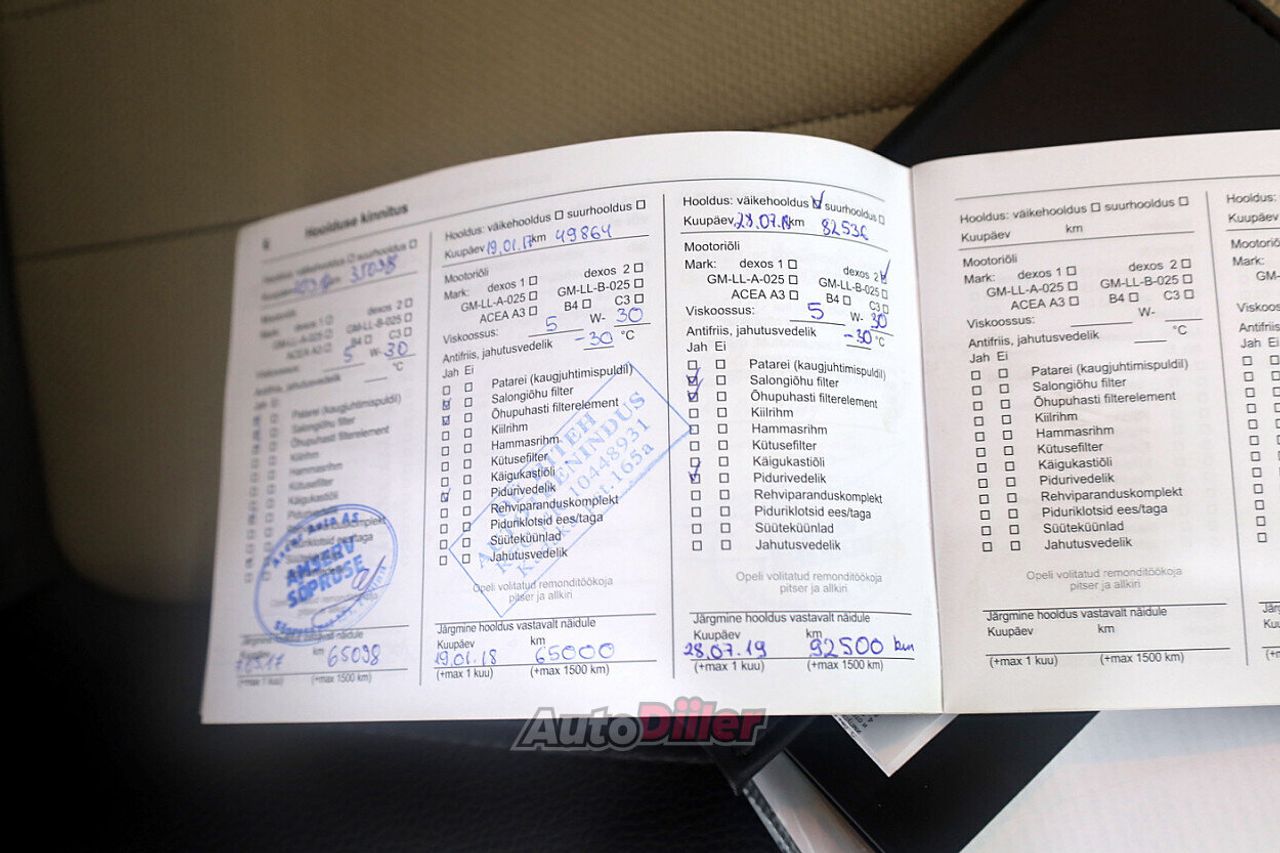 6 Hoolduse kinnitus
Hooldus: väikehooldus □ suurhooldus □
35098
Mootoriõli
Mark: dexos 1 □ dexos 2 □
GM-LL-A-025 □ GM-LL-B-025 □
ACEA A3 □ B4 □ C3 □
Viskoossus: 5 W- 30
Antifriis, jahutusvedelik °C
Jah Ei
Patarei (kaugjuhtimispuldil)
Salongiõhu filter
Õhupuhasti filterelement
Kiilrihm
Hammasrihm
Kütusefilter
Käigukastiõli
AMSERV
SÕPRUSE
Järgmine hooldus vastavalt näidule
Kuupäev km
65098
(+max 1 kuu) (+max 1500 km)
Hooldus: väikehooldus □ suurhooldus □
Kuupäev 19.01.17 km 49864
Mootoriõli
Mark: dexos 1 □ dexos 2 □
GM-LL-A-025 □ GM-LL-B-025 □
ACEA A3 □ B4 □ C3 □
Viskoossus: 5 W- 30
Antifriis, jahutusvedelik -30 °C
Jah Ei
Patarei (kaugjuhtimispuldil)
Salongiõhu filter
Õhupuhasti filterelement
Kiilrihm
Hammasrihm
Kütusefilter
Käigukastiõli
Pidurivedelik
Rehviparanduskomplekt
Piduriklotsid ees/taga
Süüteküünlad
Jahutusvedelik
10448931
165a
Opeli volitatud remonditöökoja
pitser ja allkiri
Järgmine hooldus vastavalt näidule
Kuupäev km
19.01.18 65000
(+max 1 kuu) (+max 1500 km)
Hooldus: väikehooldus ☑ suurhooldus □
Kuupäev 28.07.18 km 82536
Mootoriõli
Mark: dexos 1 □ dexos 2 ☑
GM-LL-A-025 □ GM-LL-B-025 □
ACEA A3 □ B4 □ C3 □
Viskoossus: 5 W- 30
Antifriis, jahutusvedelik -30 °C
Jah Ei
Patarei (kaugjuhtimispuldil)
Salongiõhu filter
Õhupuhasti filterelement
Kiilrihm
Hammasrihm
Kütusefilter
Käigukastiõli
Pidurivedelik
Rehviparanduskomplekt
Piduriklotsid ees/taga
Süüteküünlad
Jahutusvedelik
Opeli volitatud remonditöökoja
pitser ja allkiri
Järgmine hooldus vastavalt näidule
Kuupäev km
28.07.19 92500 km
(+max 1 kuu) (+max 1500 km)
Hooldus: väikehooldus □ suurhooldus □
Kuupäev km
Mootoriõli
Mark: dexos 1 □ dexos 2 □
GM-LL-A-025 □ GM-LL-B-025 □
ACEA A3 □ B4 □ C3 □
Viskoossus: W-
Antifriis, jahutusvedelik °C
Jah Ei
Patarei (kaugjuhtimispuldil)
Salongiõhu filter
Õhupuhasti filterelement
Kiilrihm
Hammasrihm
Kütusefilter
Käigukastiõli
Pidurivedelik
Rehviparanduskomplekt
Piduriklotsid ees/taga
Süüteküünlad
Jahutusvedelik
Opeli volitatud remonditöökoja
pitser ja allkiri
Järgmine hooldus vastavalt näidule
Kuupäev km
(+max 1 kuu) (+max 1500 km)
Hooldus:
Kuupäev
Mark:
Jah Ei
AutoDiiler